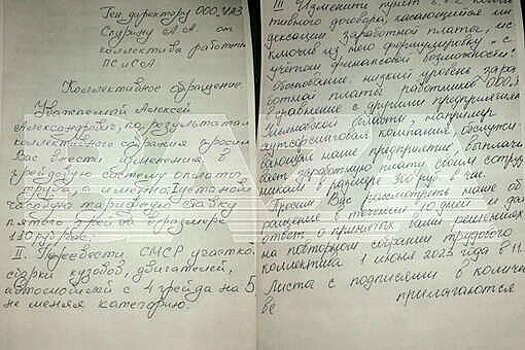 Ген. директору ООО „УАЗ
Спирину А.А. от
коллектива работни
ПС и СА
Коллективное обращение.
Уважаемый Алексей
Александрович, по результатам
коллективного собрания просим
Вас внести изменения в
грейдовую систему оплаты
труда, а именно: I установ
часовую тарифную ставку
пятого грейда в размере
110 руб/час.
II. Перевести СМСР участков
сварки кузовов, двигателей,
автомобилей с 4 грейда на 5
не меняя категорию.
III Изменить пункт коллек
тивного договора, касающийся ин
дексации заработной платы, ис
ключив из него формулировку „с
учётом финансовой возможности".
Обоснование: низкий уровень зара
ботной платы работников ООО „
сравнение с другими предприятиями
Ульяновской области, например
аутсорсинговая компания обслужи
вающая наше предприятие выплачи
вает заработную плату своим сотруд
никам в размере 300 руб. в час.
Просим Вас рассмотреть наше об
ращение в течении 10 дней и дать
ответ о принятых вами решениях
на повторном собрании трудового
коллектива 1 июня 2023 года в 11.
Листы с подписями в количе
ве прилагаются
BAZA